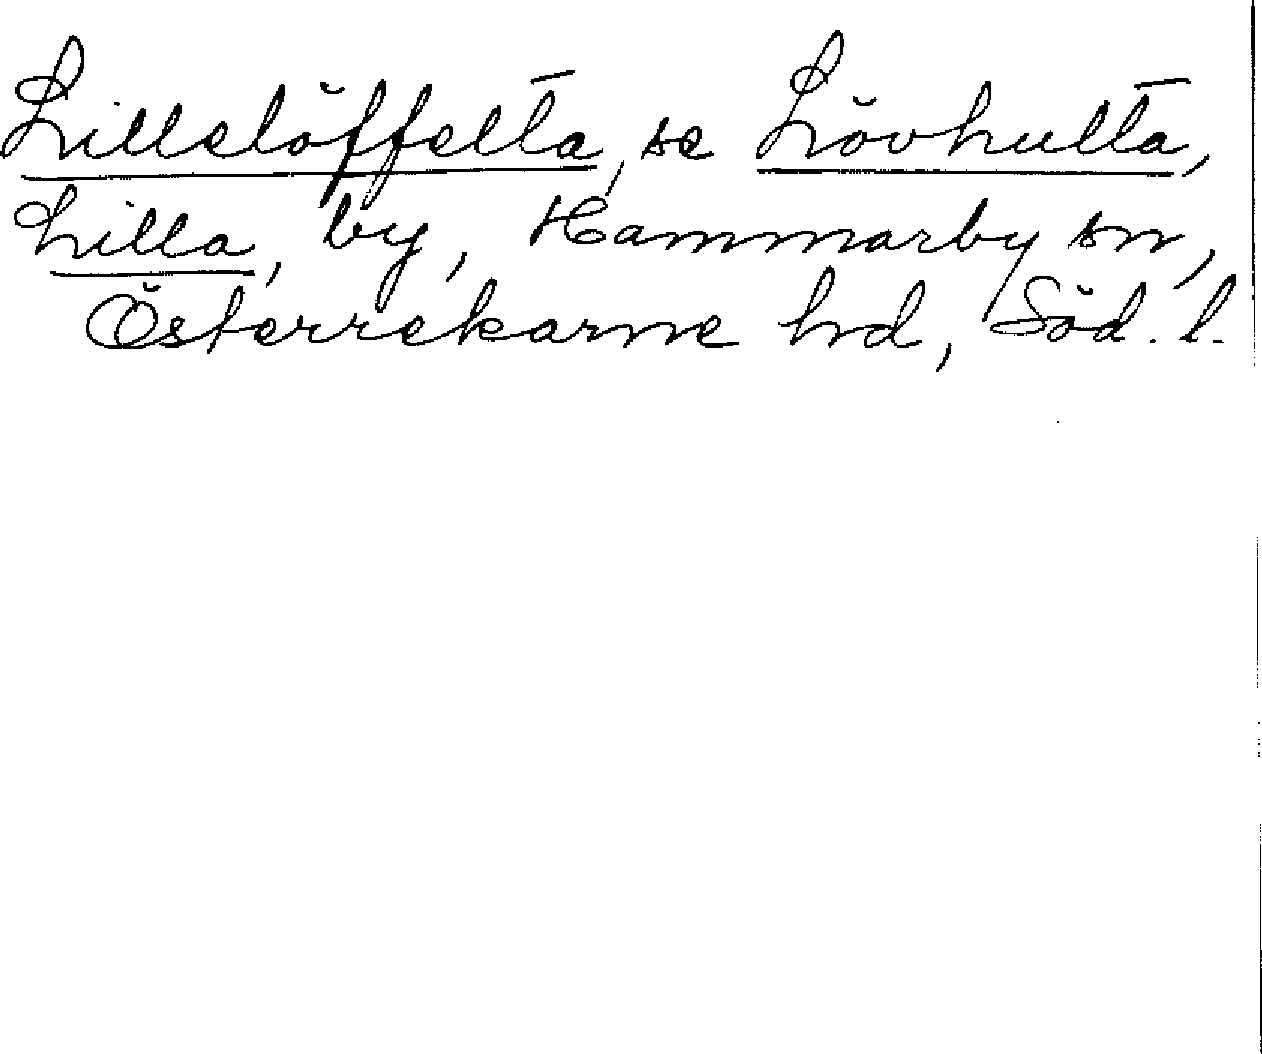 Lillelöffelta, se Lövhulta,
Lilla, by, Hammarby sn,
Österrekarne hd, Söd. l.